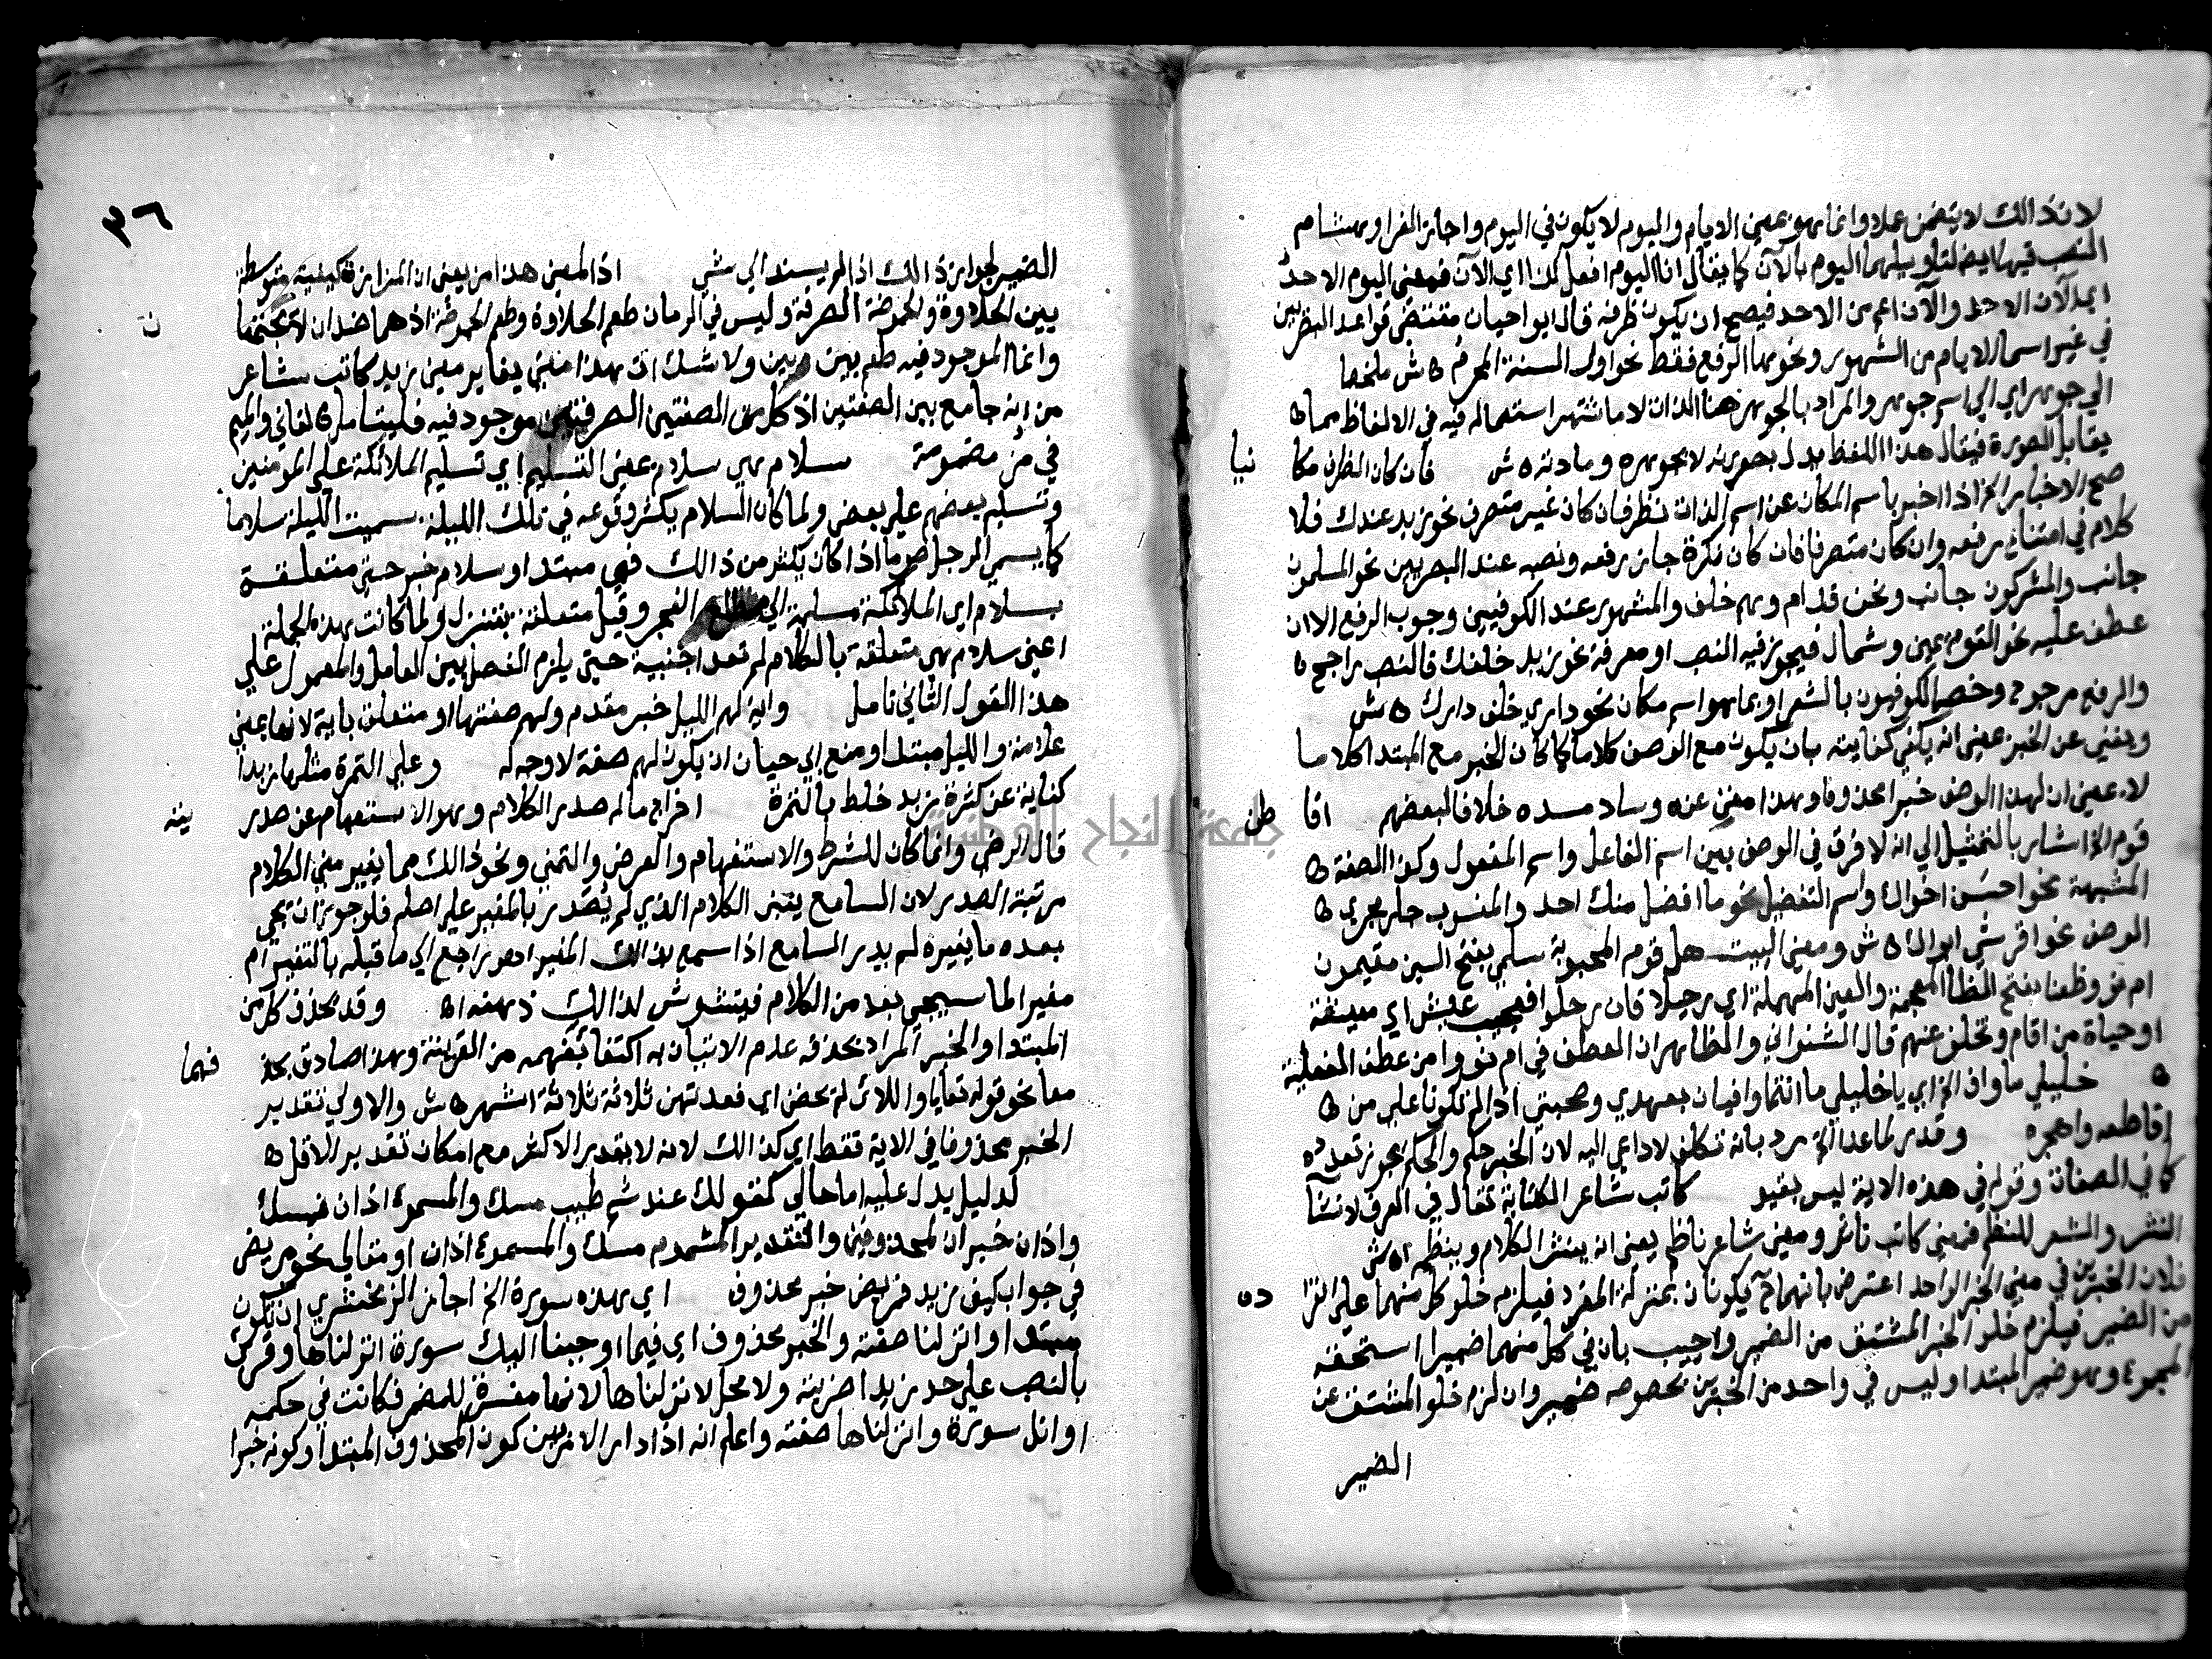 لان ذالك لا يتضمن عملا وانما هو بمعني الايام واليوم لا يكون في اليوم واجاز الفرا وهشام
النصب فيهما ايضا لتاويلهما اليوم بالآن كما يقال انا اليوم افعل كذا اي الآن فمعني اليوم الاحد
اي الآن الاحد والآن اعم من الاحد فيصح ان يكون ظرفه قال ابو احيان مقتضي قواعد البصريين
في غير اسما الايام من الشهور ونحوها الرفع فقط نحو اول السنة المحرم ه ش ملخصا
الي جوهر اي الي اسم جوهر والمراد بالجوهر هنا الذات لا ما اشتهر استعماله فيه في الالفاظ مما ه
يقابل الصورة فيقال هذا اللفظ يدل بصورته لا بجوهره ومادته ه ش فان كان الظرف مكا نيا
صح الاخبار الخ اذا اخبر باسم المكان عن اسم الذات نظر فان كان غير متصرف نحو زيد عندك فلا
كلام في امتناع رفعه وان كان متصرفا فان كان نكرة جاز رفعه ونصبه عند البصريين نحو المسلمون
جانب والمشركون جانب ونحن قدام وهم خلف والمشهور عند الكوفيين وجوب الرفع الا ان
عطف عليه نحو القوم يمين وشمال فيجوز فيه النصب او معرفة نحو زيد خلفك فالنصب راجح ه
والرفع مرجوح وخصه الكوفيون بالشعر او بما هو اسم مكان نحو داري خلف دارك ه ش
ويغني عن الخبر بمعني انه يكفي كفايته بان يكون مع الوصف كلاما كما كان الخبر مع المبتدا كلاما
لا بمعني ان لهذا الوصف خبرا محذوفا وهذا مغن عنه وساد مسده خلافا لبعضهم اقا طن
قوم الخ اشار بالتمثيل الي انه لا فرق في الوصف بين اسم الفاعل واسم المفعول وكذا الصفة ه
المشبهة نحو احسن اخواك واسم التفضيل نحو ما افضل منك احد والمنسوب جار مجري ه
الوصف نحو اقرشي ابواك ه ش ومعني البيت هل قوم المحبوبة سلمي بفتح السين مقيمون
ام نووا ظعنا بفتح الظا المعجمة والعين المهملة اي رحيلا فان رحلوا فعجيب عيش اي معيشة
او حياة من اقام وتخلف عنهم قال الشنواني والظاهر ان العطف في ام نووا من عطف الفعلية
ه خليلي ما واف الخ اي يا خليلي ما انتما وافيان بعهدي وصحبتي اذا لم تكونا علي من ه
اقاطعه واهجره وقدر لما عدا الخ رد بانه تكلف لا داعي اليه لان الخبر حكم والحكم يجوز تعدده
كما في الصفات وقوله في هذه الاية ليس بقيد كاتب شاعر الكتابة تقال في العرف لانشا
النثر والشعر للنظم فمعني كاتب ناثر ومعني شاعر ناظم يعني انه ينثر الكلام وينظم اه ش
فلان الخبرين في معني الخبر الواحد اعترض بانهما ح يكونان بمنزلة المفرد فيلزم خلو كل منهما علي انفرا ده
من الضمير فيلزم خلو الخبر المشتق من الضمير واجيب بان في كل منهما ضميرا استحقه
المجموع وهو ضمير المبتدا وليس في واحد من الخبرين بخصوصه ضمير وان لزم خلو المشتق عن
الضمير
٣٦
الضمير لجواز ذالك اذا لم يسند الي شي اذ المعني هذا مز يعني ان المزازة كيفية متوسطة
بين الحلاوة والحموضة الصرفة وليس في الرمان طعم الحلاوة وطعم الحموضة اذ هما ضدان لا يجتمعا ن
وانما الموجود فيه طعم بين بين ولا شك ان هذا معني يغاير معني زيد كاتب شاعر
من انه جامع بين الصفتين اذ كل من الصفتين الصرفتين موجود فيه فليتامل ه لقاني والميم
في مز مضمومة سلام هي سلام بمعني التسليم اي تسليم الملائكة علي المومنين
وتسليم بعضهم علي بعض ولما كان السلام يكثر وقوعه في تلك الليلة سميت الليلة سلاما
كما يسمي الرجل صوما اذا كان يكثر من ذالك فهي مبتدا وسلام خبر حتي متعلقة
بسلام اي الملائكة مسلمة الي مطلع الفجر وقيل متعلقة بتنزل ولما كانت هذه الجملة
اعني سلام هي متعلقة بالكلام لم تعد اجنبية حتي يلزم الفصل بين العامل والمعمول علي
هذا القول الثاني تامل واية لهم الليل خبر مقدم ولهم صفتها او متعلق باية لانها بمعني
علامة والليل مبتدا ومنع ابي حيان ان يكون لهم صفة لا وجه له وعلي التمرة مثلها زبدا
كناية عن كثرة زبد خلط بالتمرة اخراج ماله صدر الكلام وهو الاستفهام عن صدر يته
قال الرضي وانما كان للشرط والاستفهام والعرض والتمني ونحو ذالك مما يغير معني الكلام
مرتبة الصدر لان السامع يبني الكلام الذي لم يصدر بالمغير علي اصله فلو جوز ان يجي
بعده ما يغيره لم يدر السامع اذا سمع بذالك المغير اهو راجع الي ما قبله بالتغيير ام
مغير لما سيجي بعد من الكلام فيتشوش لذالك ذهنه اه وقد يحذف كل من
المبتدا والخبر المراد بحذفه عدم الاتيان به اكتفا بفهمه من القرينة وهذا صادق بحذ فهما
معا نحو قوله تعالي واللائ لم يحضن اي فعدتهن ثلاثة ثلاثة اشهر ه ش والاولي تقدير
الخبر محذوفا في الاية فقط اي كذالك لانه لا يقدر الاكثر مع امكان تقدير الاقل ه
لدليل يدل عليه اما حالي كقولك عند شم طيب مسك والمسموع اذان فمسك
واذان خبران لمحذوفين والتقدير المشموم مسك والمسموع اذان او مقالي نحو مريض
في جواب كيف زيد فمريض خبر محذوف اي هذه سورة الخ اجاز الزمخشري ان تكون
مبتدا وانزلنا صفته والخبر محذوف اي فيما اوحينا اليك سورة انزلناها وقري
بالنصب علي حد زيدا ضربته ولا محل لانزلناها لانها مفسرة للمضمر فكانت في حكمه
او اتل سورة وانزلناها صفته واعلم انه اذا دار الامر بين كون المحذوف المبتدا وكونه خبرا
جامعة النجاح الوطنية